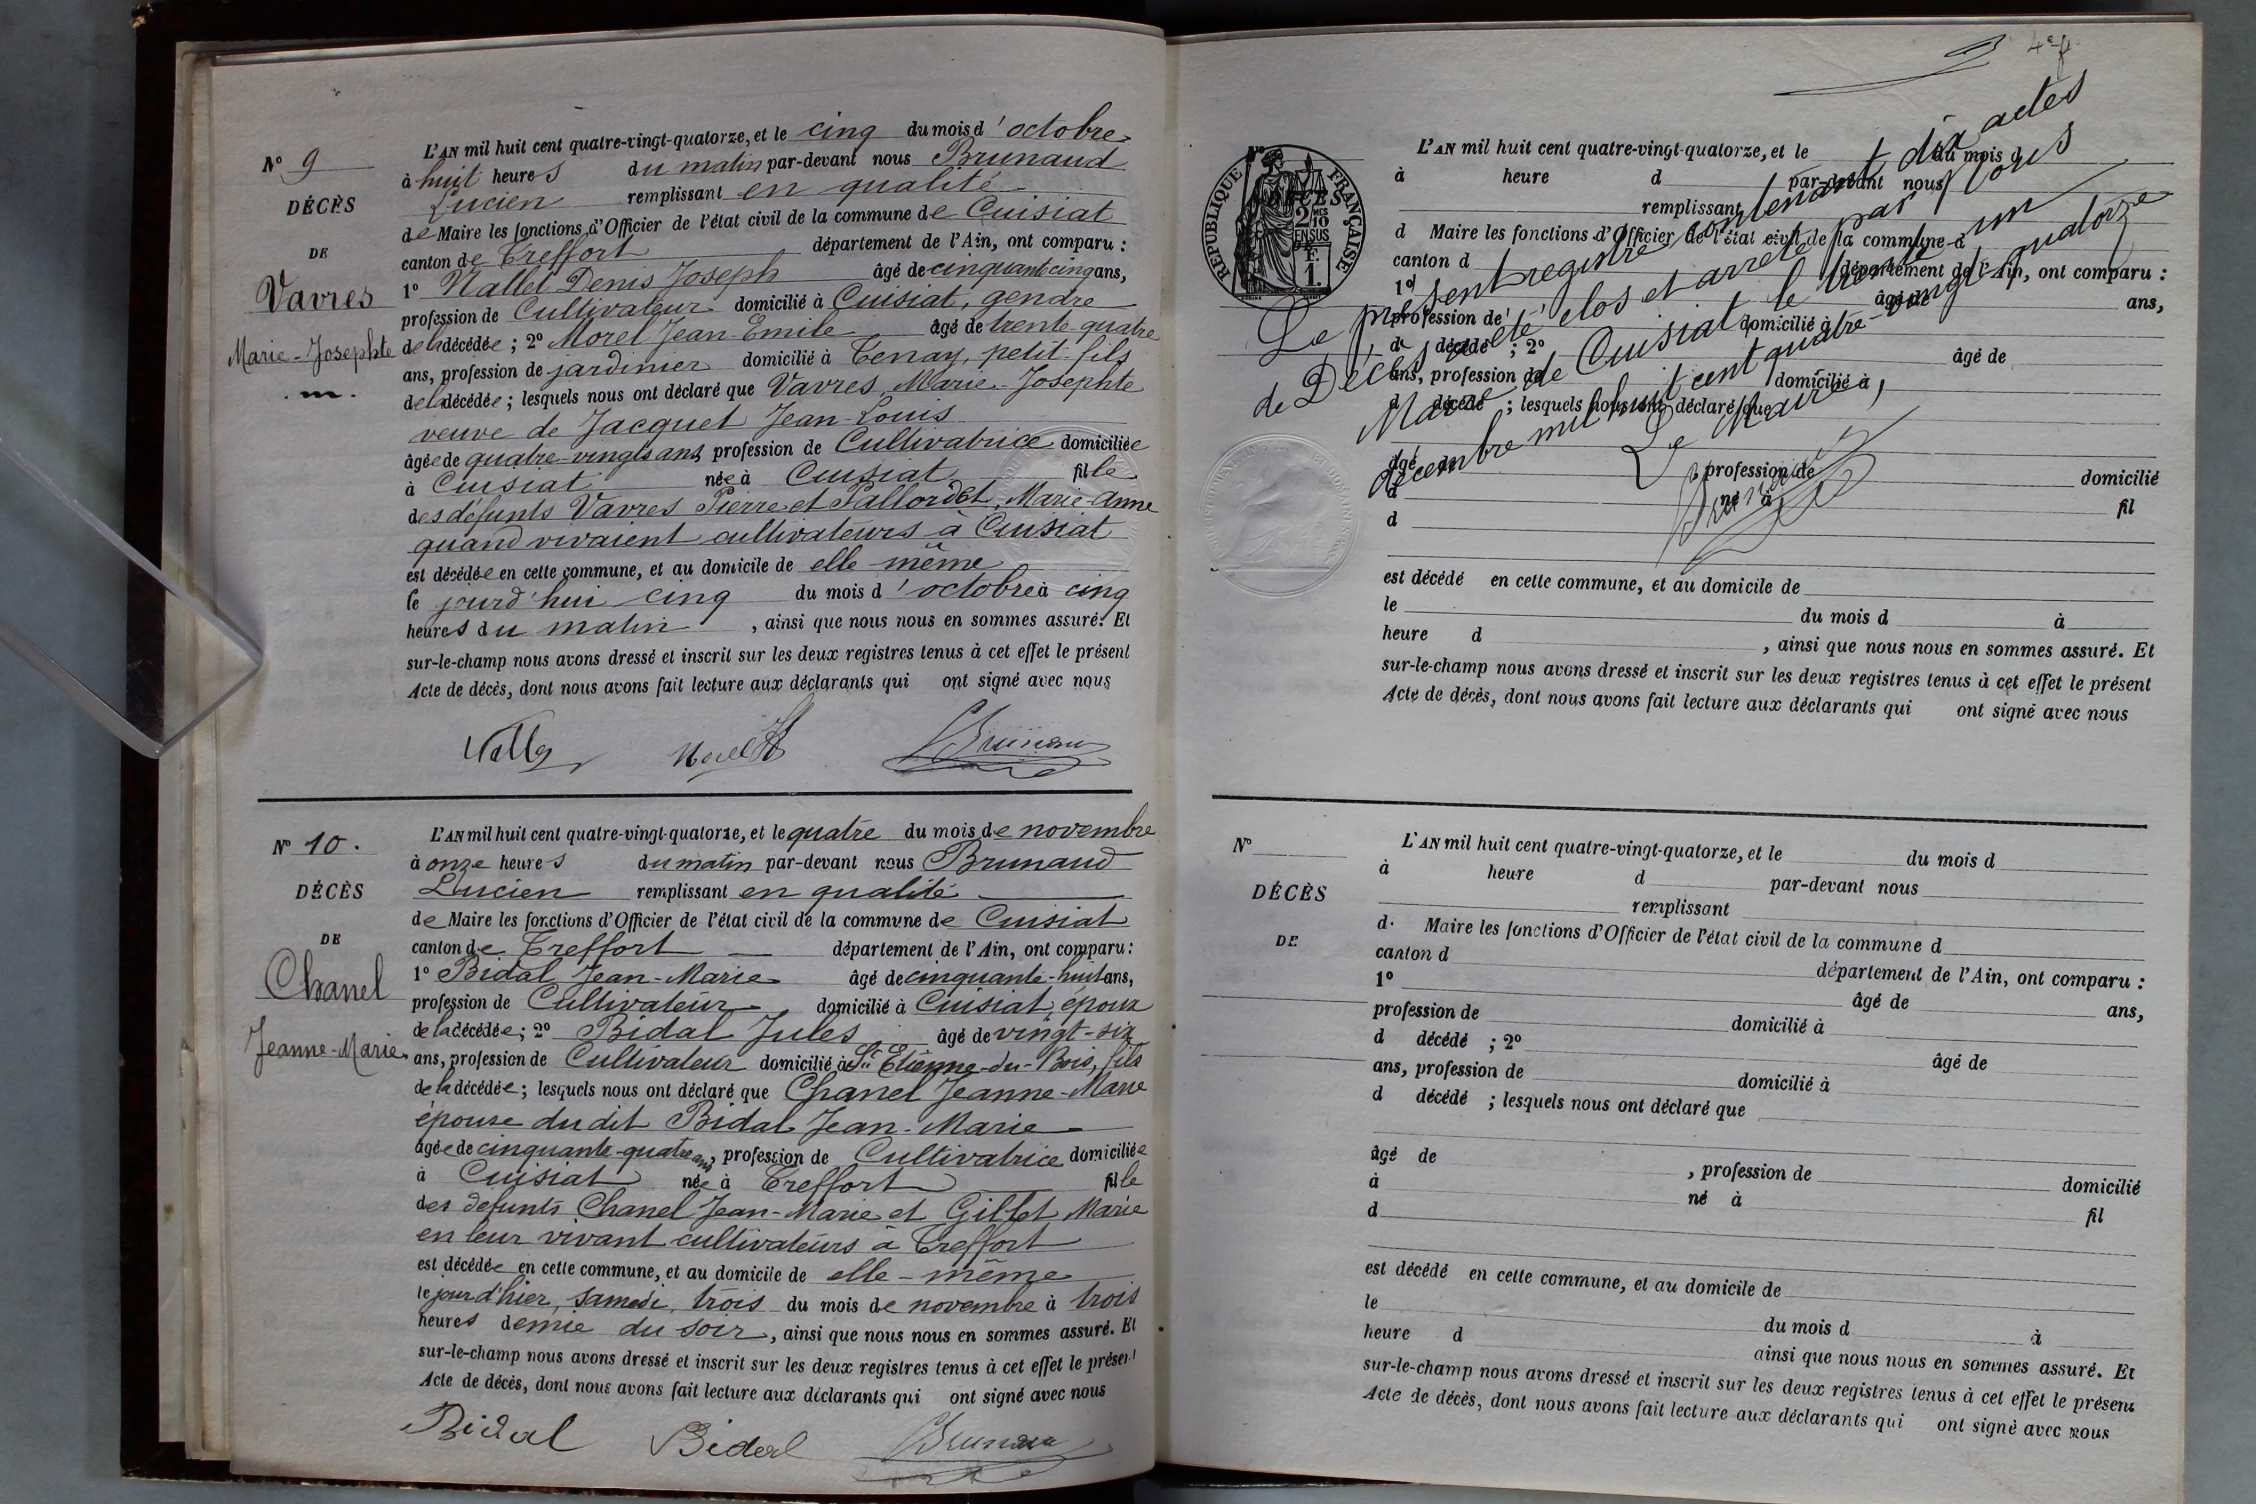 N° 9
DÉCÈS
DE
Vavres
Marie-Josephte
L'AN mil huit cent quatre-vingt-quatorze, et le cinq du mois d'octobre
à huit heures du matin par-devant nous Brunaud
Lucien remplissant en qualité
de Maire les fonctions d'Officier de l'état civil de la commune de Cuisiat
canton de Treffort département de l'Ain, ont comparu :
1° Nallet Denis Joseph âgé de cinquante cinq ans,
profession de Cultivateur domicilié à Cuisiat, gendre
de la décédée ; 2° Morel Jean Emile âgé de trente quatre
ans, profession de jardinier domicilié à Tenay, petit-fils
de la décédée ; lesquels nous ont déclaré que Vavres Marie-Josephte
veuve de Jacquet Jean-Louis
âgée de quatre-vingts ans, profession de Cultivatrice domiciliée
à Cuisiat née à Cuisiat fille
des défunts Vavres Pierre et Pallordet, Marie-Anne
quand vivaient cultivateurs à Cuisiat
est décédée en cette commune, et au domicile de elle même
le jourd'hui cinq du mois d'octobre à cinq
heures du matin, ainsi que nous nous en sommes assuré. Et
sur-le-champ nous avons dressé et inscrit sur les deux registres tenus à cet effet le présent
Acte de décès, dont nous avons fait lecture aux déclarants qui ont signé avec nous
N° 10.
DÉCÈS
DE
Chanel
Jeanne-Marie
L'AN mil huit cent quatre-vingt-quatorze, et le quatre du mois de novembre
à onze heures du matin par-devant nous Brunaud
Lucien remplissant en qualité
de Maire les fonctions d'Officier de l'état civil de la commune de Cuisiat
canton de Treffort département de l'Ain, ont comparu :
1° Bidal Jean-Marie âgé de cinquante-huit ans,
profession de Cultivateur domicilié à Cuisiat, époux
de la décédée ; 2° Bidal Jules âgé de vingt-six
ans, profession de Cultivateur domicilié à St Etienne-du-Bois, fils
de la décédée ; lesquels nous ont déclaré que Chanel Jeanne-Marie
épouse du dit Bidal Jean-Marie
âgée de cinquante-quatre ans, profession de Cultivatrice domiciliée
à Cuisiat née à Treffort fille
des défunts Chanel Jean-Marie et Gillet Marie
en leur vivant cultivateurs à Treffort
est décédée en cette commune, et au domicile de elle-même
le jour d'hier, samedi, trois du mois de novembre à trois
heures demie du soir, ainsi que nous nous en sommes assuré. Et
sur-le-champ nous avons dressé et inscrit sur les deux registres tenus à cet effet le présent
Acte de décès, dont nous avons fait lecture aux déclarants qui ont signé avec nous
Bidal Bidal Brunaud
4e f.
RÉPUBLIQUE FRANÇAISE
2/10 MES EN SUS
1 F.
Le présent registre contenant dix actes
de Décès a été clos et arrêté par Nous
Maire de Cuisiat, le trente un
décembre mil huit cent quatre-vingt quatorze
Le Maire,
L'AN mil huit cent quatre-vingt-quatorze, et le du mois d
à heure d par-devant nous
remplissant
d Maire les fonctions d'Officier de l'état civil de la commune d
canton d département de l'Ain, ont comparu :
1° âgé de ans,
profession de domicilié à
d décédé ; 2° âgé de
ans, profession de domicilié à
d décédé ; lesquels nous ont déclaré que
âgé de , profession de domicilié
à né à fil
d
est décédé en cette commune, et au domicile de
le du mois d à
heure d , ainsi que nous nous en sommes assuré. Et
sur-le-champ nous avons dressé et inscrit sur les deux registres tenus à cet effet le présent
Acte de décès, dont nous avons fait lecture aux déclarants qui ont signé avec nous
N°
DÉCÈS
DE
L'AN mil huit cent quatre-vingt-quatorze, et le du mois d
à heure d par-devant nous
remplissant
d Maire les fonctions d'Officier de l'état civil de la commune d
canton d département de l'Ain, ont comparu :
1° âgé de ans,
profession de domicilié à
d décédé ; 2° âgé de
ans, profession de domicilié à
d décédé ; lesquels nous ont déclaré que
âgé de , profession de domicilié
à né à fil
d
est décédé en cette commune, et au domicile de
le du mois d à
heure d ainsi que nous nous en sommes assuré. Et
sur-le-champ nous avons dressé et inscrit sur les deux registres tenus à cet effet le présent
Acte de décès, dont nous avons fait lecture aux déclarants qui ont signé avec nous